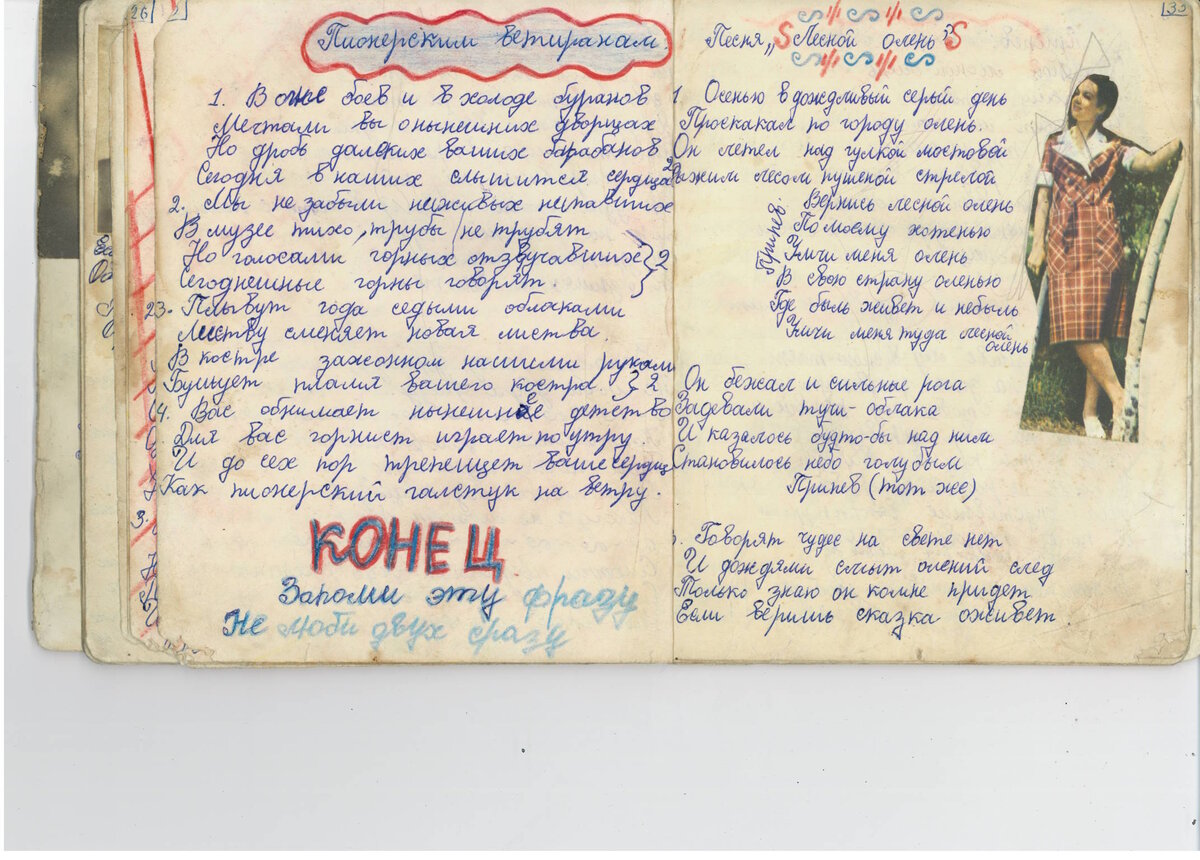 26
2
Пионерским ветиранам.
1. В огне боев и в холоде буранов
Мечтали вы о нынешних дворцах
Но дробь далёких ваших барабанов
Сегодня в наших слышится сердцах
2. Мы не забыли неживых непавших
В музее тихо, трубы не трубят
Но голосами горных отзвучавших } 2
Сегоднешные горны говорят
23. Плывут года седыми облаками
Листву сменяет новая листва
В костре зажоном нашими руками
Бушует пламя вашего костра. } 2
4. Вас обнимает нынешнее детство
Для вас горнист играет по утру.
И до сех пор трепещет ваше сердце
Как пионерский галстук на ветру.
КОНЕЦ
Запоми эту фразу
Не люби двух сразу
33
Песня „Лесной олень"
1. Осенью в дождливый серый день
Проскакал по городу олень.
Он летел над гулкой мостовой
Рыжим лесом пушеной стрелой
Припев: Вернись лесной олень
По моему хотенью
Умчи меня олень
В свою страну оленью
Где быль живет и небыль
Умчи меня туда лесной олень
Он бежал и сильные рога
Задевали тучи-облака
И казалось будто-бы над ним
Становилось небо голубым
Припев (тот же)
Говорят чудес на свете нет
И дождями смыт олений след
Только знаю он комне придет
Если веришь сказка оживет